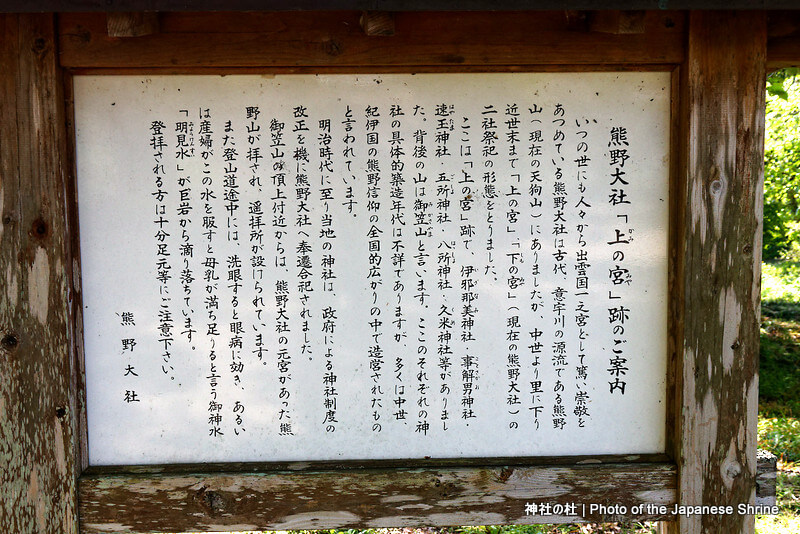 熊野大社「上の宮」跡のご案内
かみ みや
いつの世にも人々から出雲国一之宮として篤い崇敬を
あつめている熊野大社は古代、意宇川の源流である熊野
山(現在の天狗山)にありましたが、中世より里に下り
近世末まで「上の宮」「下の宮」(現在の熊野大社)の
二社祭祀の形態をとりました。
ここは「上の宮」跡で、伊邪那美神社・事解男神社・
速玉神社・五所神社・八所神社・久米神社等がありまし
た。背後の山は御笠山と言います。ここのそれぞれの神
社の具体的築造年代は不詳でありますが、多くは中世
紀伊国の熊野信仰の全国的広がりの中で造営されたもの
と言われています。
明治時代に至り当地の神社は、政府による神社制度の
改正を機に熊野大社へ奉遷合祀されました。
御笠山の頂上付近からは、熊野大社の元宮があった熊
野山が拝され、遥拝所が設けられています。
また登山道途中には、洗眼すると眼病に効き、あるい
は産婦がこの水を服すと母乳が満ち足りると言う御神水
「明見水」が巨岩から滴り落ちています。
登拝される方は十分足元等にご注意下さい。
熊野大社
神社の杜 | Photo of the Japanese Shrine